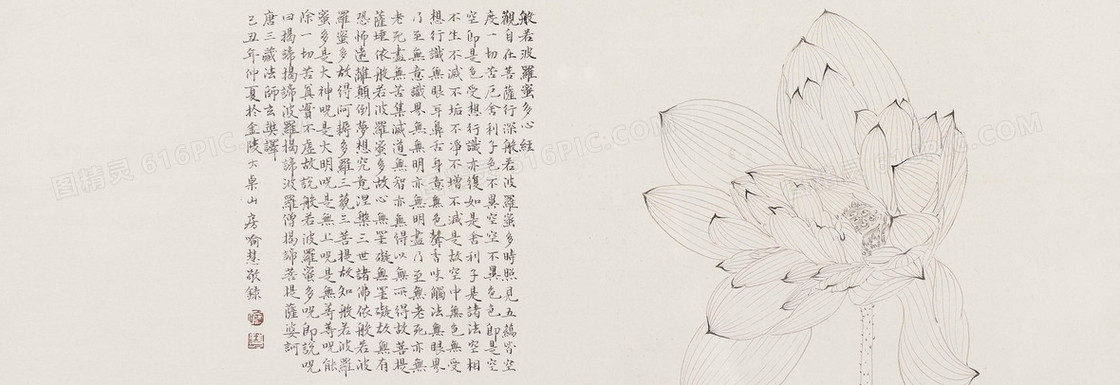 般若波羅蜜多心經
觀自在菩薩行深般若波羅蜜多時照見五蘊皆空
度一切苦厄舍利子色不異空空不異色色即是空
空即是色受想行識亦復如是舍利子是諸法空相
不生不滅不垢不淨不增不減是故空中無色無受
想行識無眼耳鼻舌身意無色聲香味觸法無眼界
乃至無意識界無無明亦無無明盡乃至無老死亦無
老死盡無苦集滅道無智亦無得以無所得故菩提
薩埵依般若波羅蜜多故心無罣礙無罣礙故無有
恐怖遠離顛倒夢想究竟涅槃三世諸佛依般若波
羅蜜多故得阿耨多羅三藐三菩提故知般若波羅
蜜多是大神呪是大明呪是無上呪是無等等呪能
除一切苦真實不虛故說般若波羅蜜多呪即說呪
曰揭諦揭諦波羅揭諦波羅僧揭諦菩提薩婆訶
唐三藏法師玄奘譯
己丑年仲夏於金陵六桌山房喻慧敬錄
图精灵 616PIC.COM